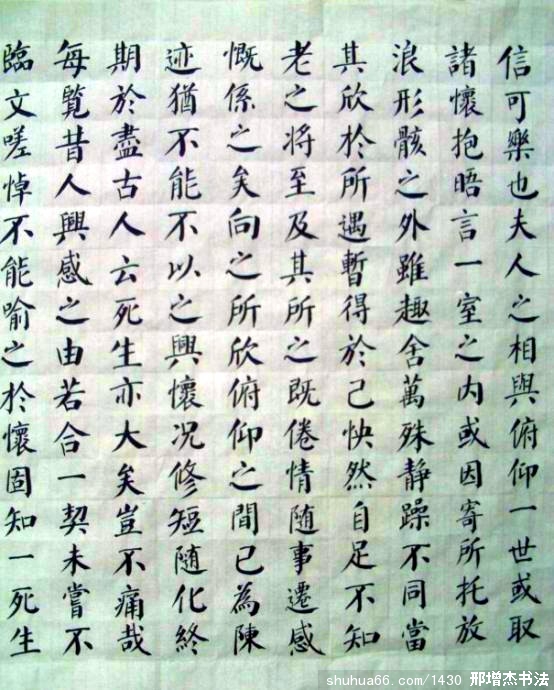 信可樂也夫人之相與俯仰一世或取
諸懷抱晤言一室之内或因寄所托放
浪形骸之外雖趣舍萬殊静躁不同當
其欣於所遇暫得於己怏然自足不知
老之将至及其所之既倦情随事遷感
慨係之矣向之所欣俯仰之間已為陳
迹猶不能不以之興懷况修短随化終
期於盡古人云死生亦大矣豈不痛哉
每覧昔人興感之由若合一契未嘗不
臨文嗟悼不能喻之於懷固知一死生
shuhua66.com/1430 邢增杰书法